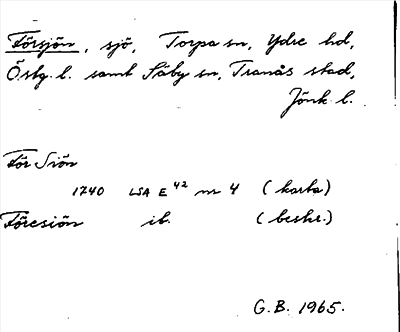 Försjön, sjö, Torpa sn, Ydre hd,
Östg. l. samt Säby sn, Tranås stad,
Jönk. l.
För Siön
1740 LSA E 42 nr 4 (karta)
Föresiön ib. (beskr.)
G.B. 1965.